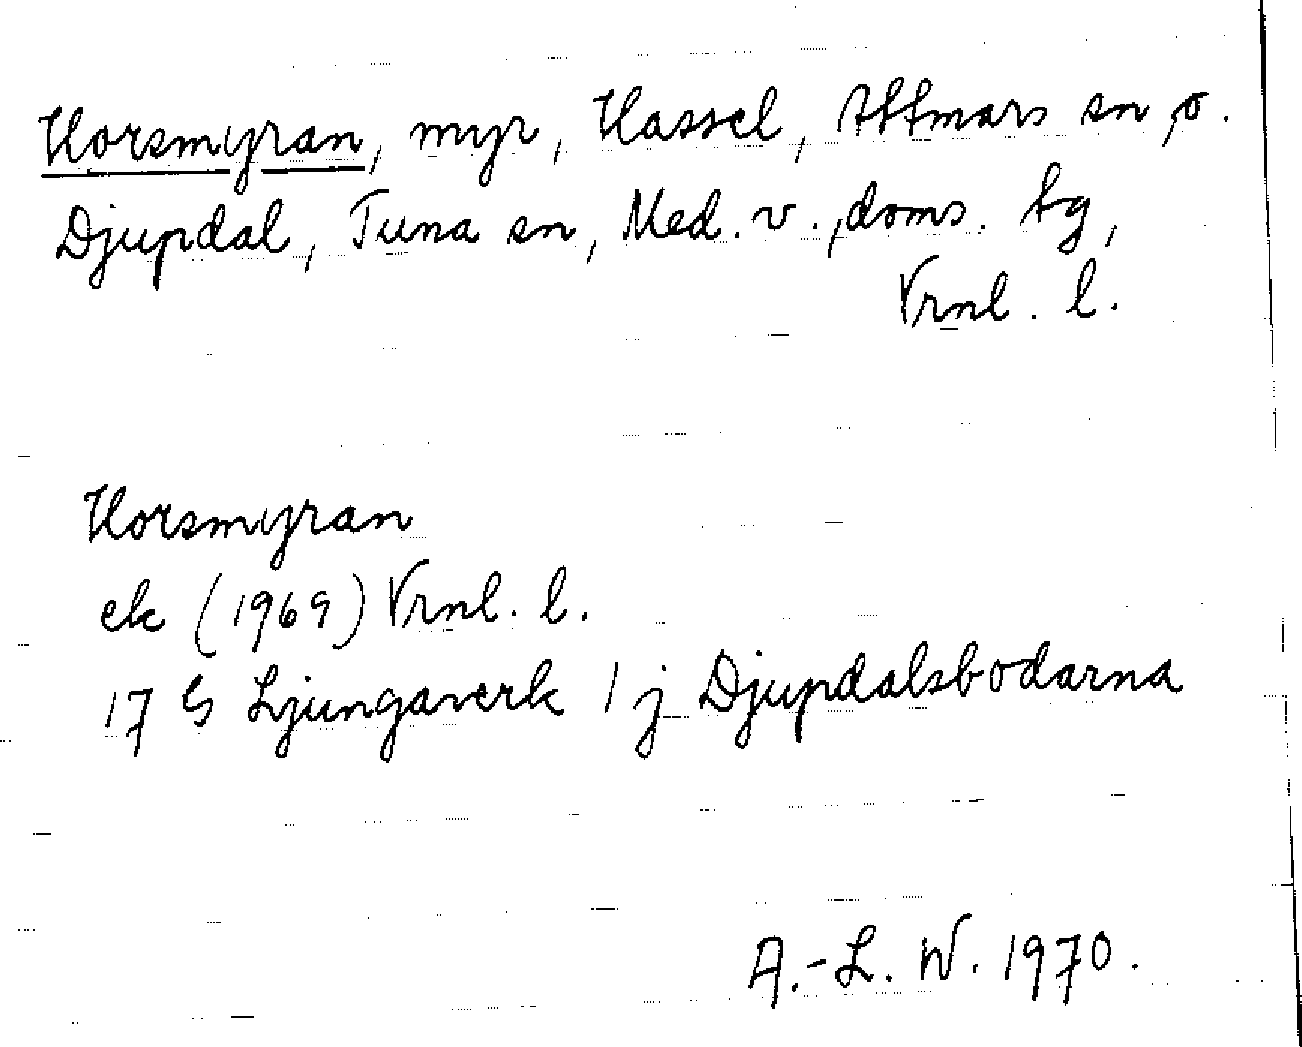 Horsmyran, myr, Hassel, Attmars sn, o.
Djupdal, Tuna sn, Med. v., doms. tg,
Vrnl. l.
Horsmyran
ek (1969) Vrnl. l.
17 G Ljungaverk 1 j Djupdalsbodarna
A.-L. W. 1970.